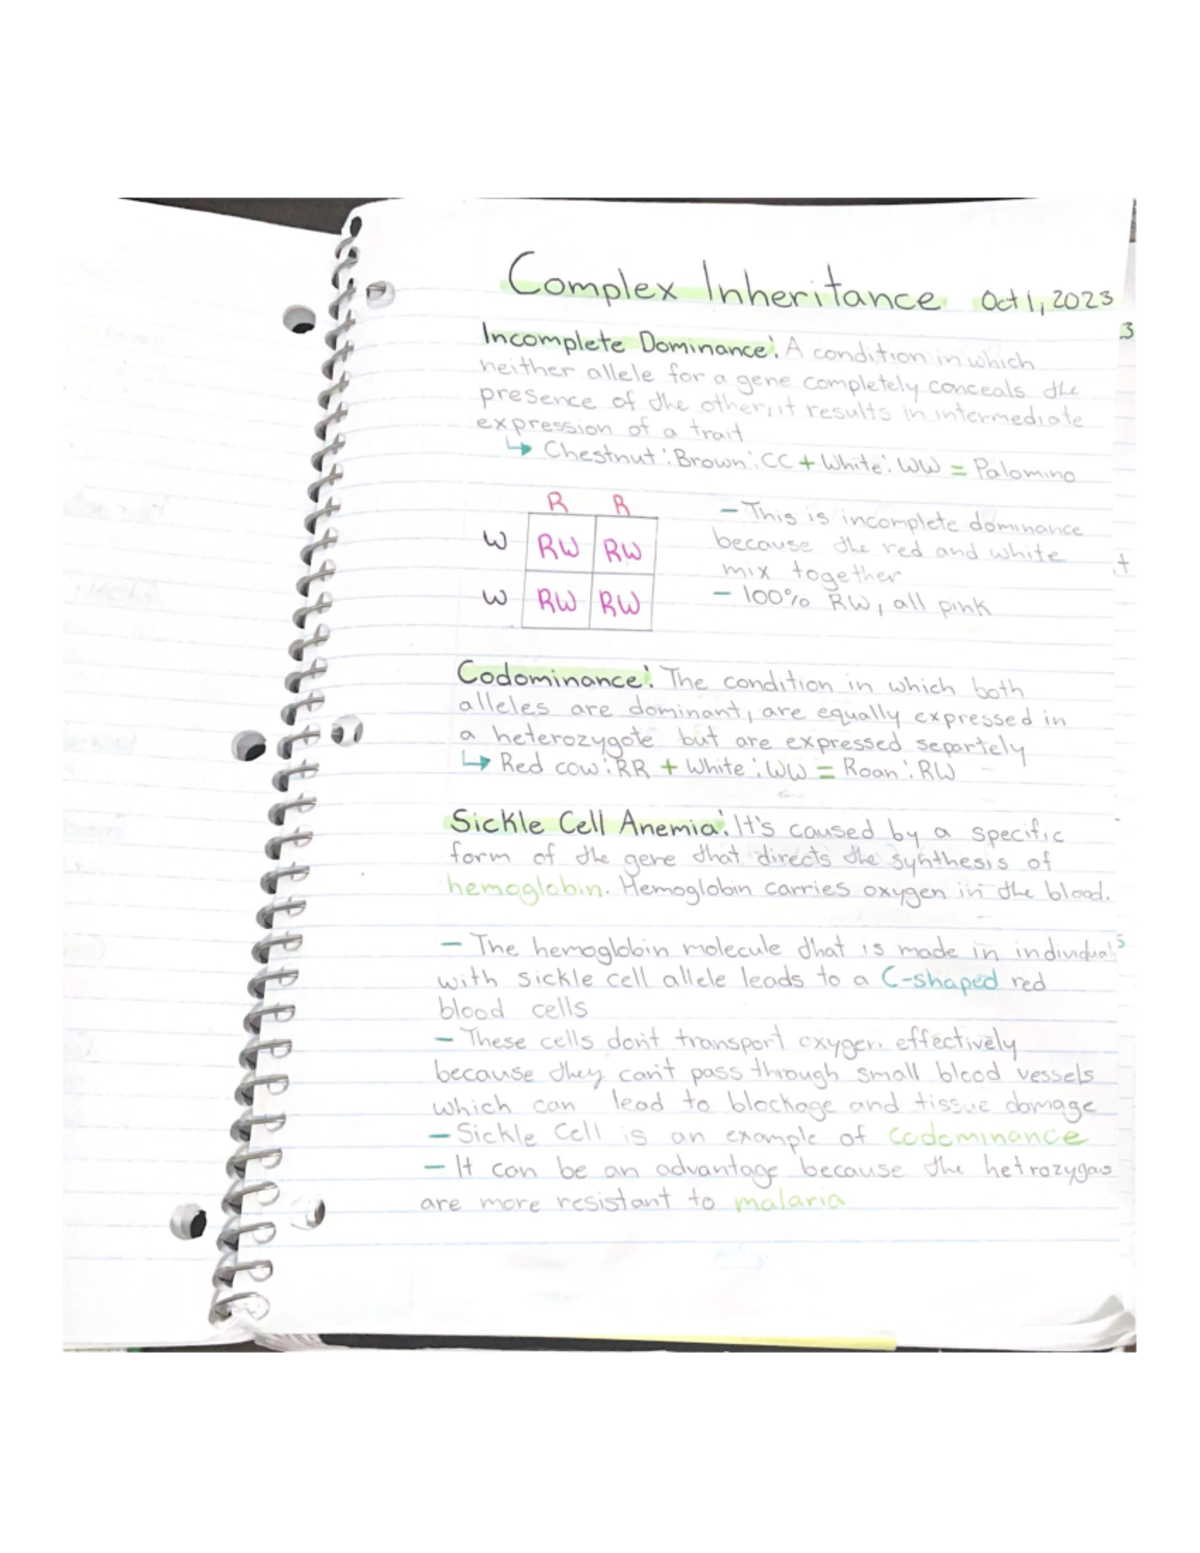 Complex Inheritance Oct 1, 2023
3
Incomplete Dominance: A condition in which
neither allele for a gene completely conceals the
presence of the other, it results in intermediate
expression of a trait
↳ Chestnut: Brown: CC + White: WW = Palomino
R R
W RW RW
W RW RW
- This is incomplete dominance
because the red and white
mix together
- 100% RW, all pink
t
Codominance: The condition in which both
alleles are dominant, are equally expressed in
a heterozygote but are expressed separtely
↳ Red cow: RR + White: WW = Roan: RW
Sickle Cell Anemia: It's caused by a specific
form of the gene that directs the synthesis of
hemoglobin. Hemoglobin carries oxygen in the blood.
- The hemoglobin molecule that is made in individuals
with sickle cell allele leads to a C-shaped red
blood cells
- These cells don't transport oxygen effectively
because they can't pass through small blood vessels
which can lead to blockage and tissue damage
- Sickle Cell is an example of codominance
- It can be an advantage because the hetrozygas
are more resistant to malaria